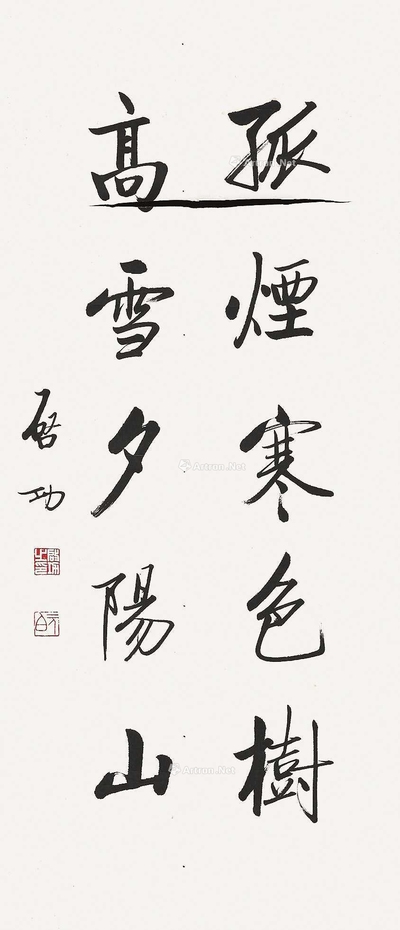 孤煙寒色樹
高雪夕陽山
啓功
Artron.Net
Artron.Net
Artron.Net